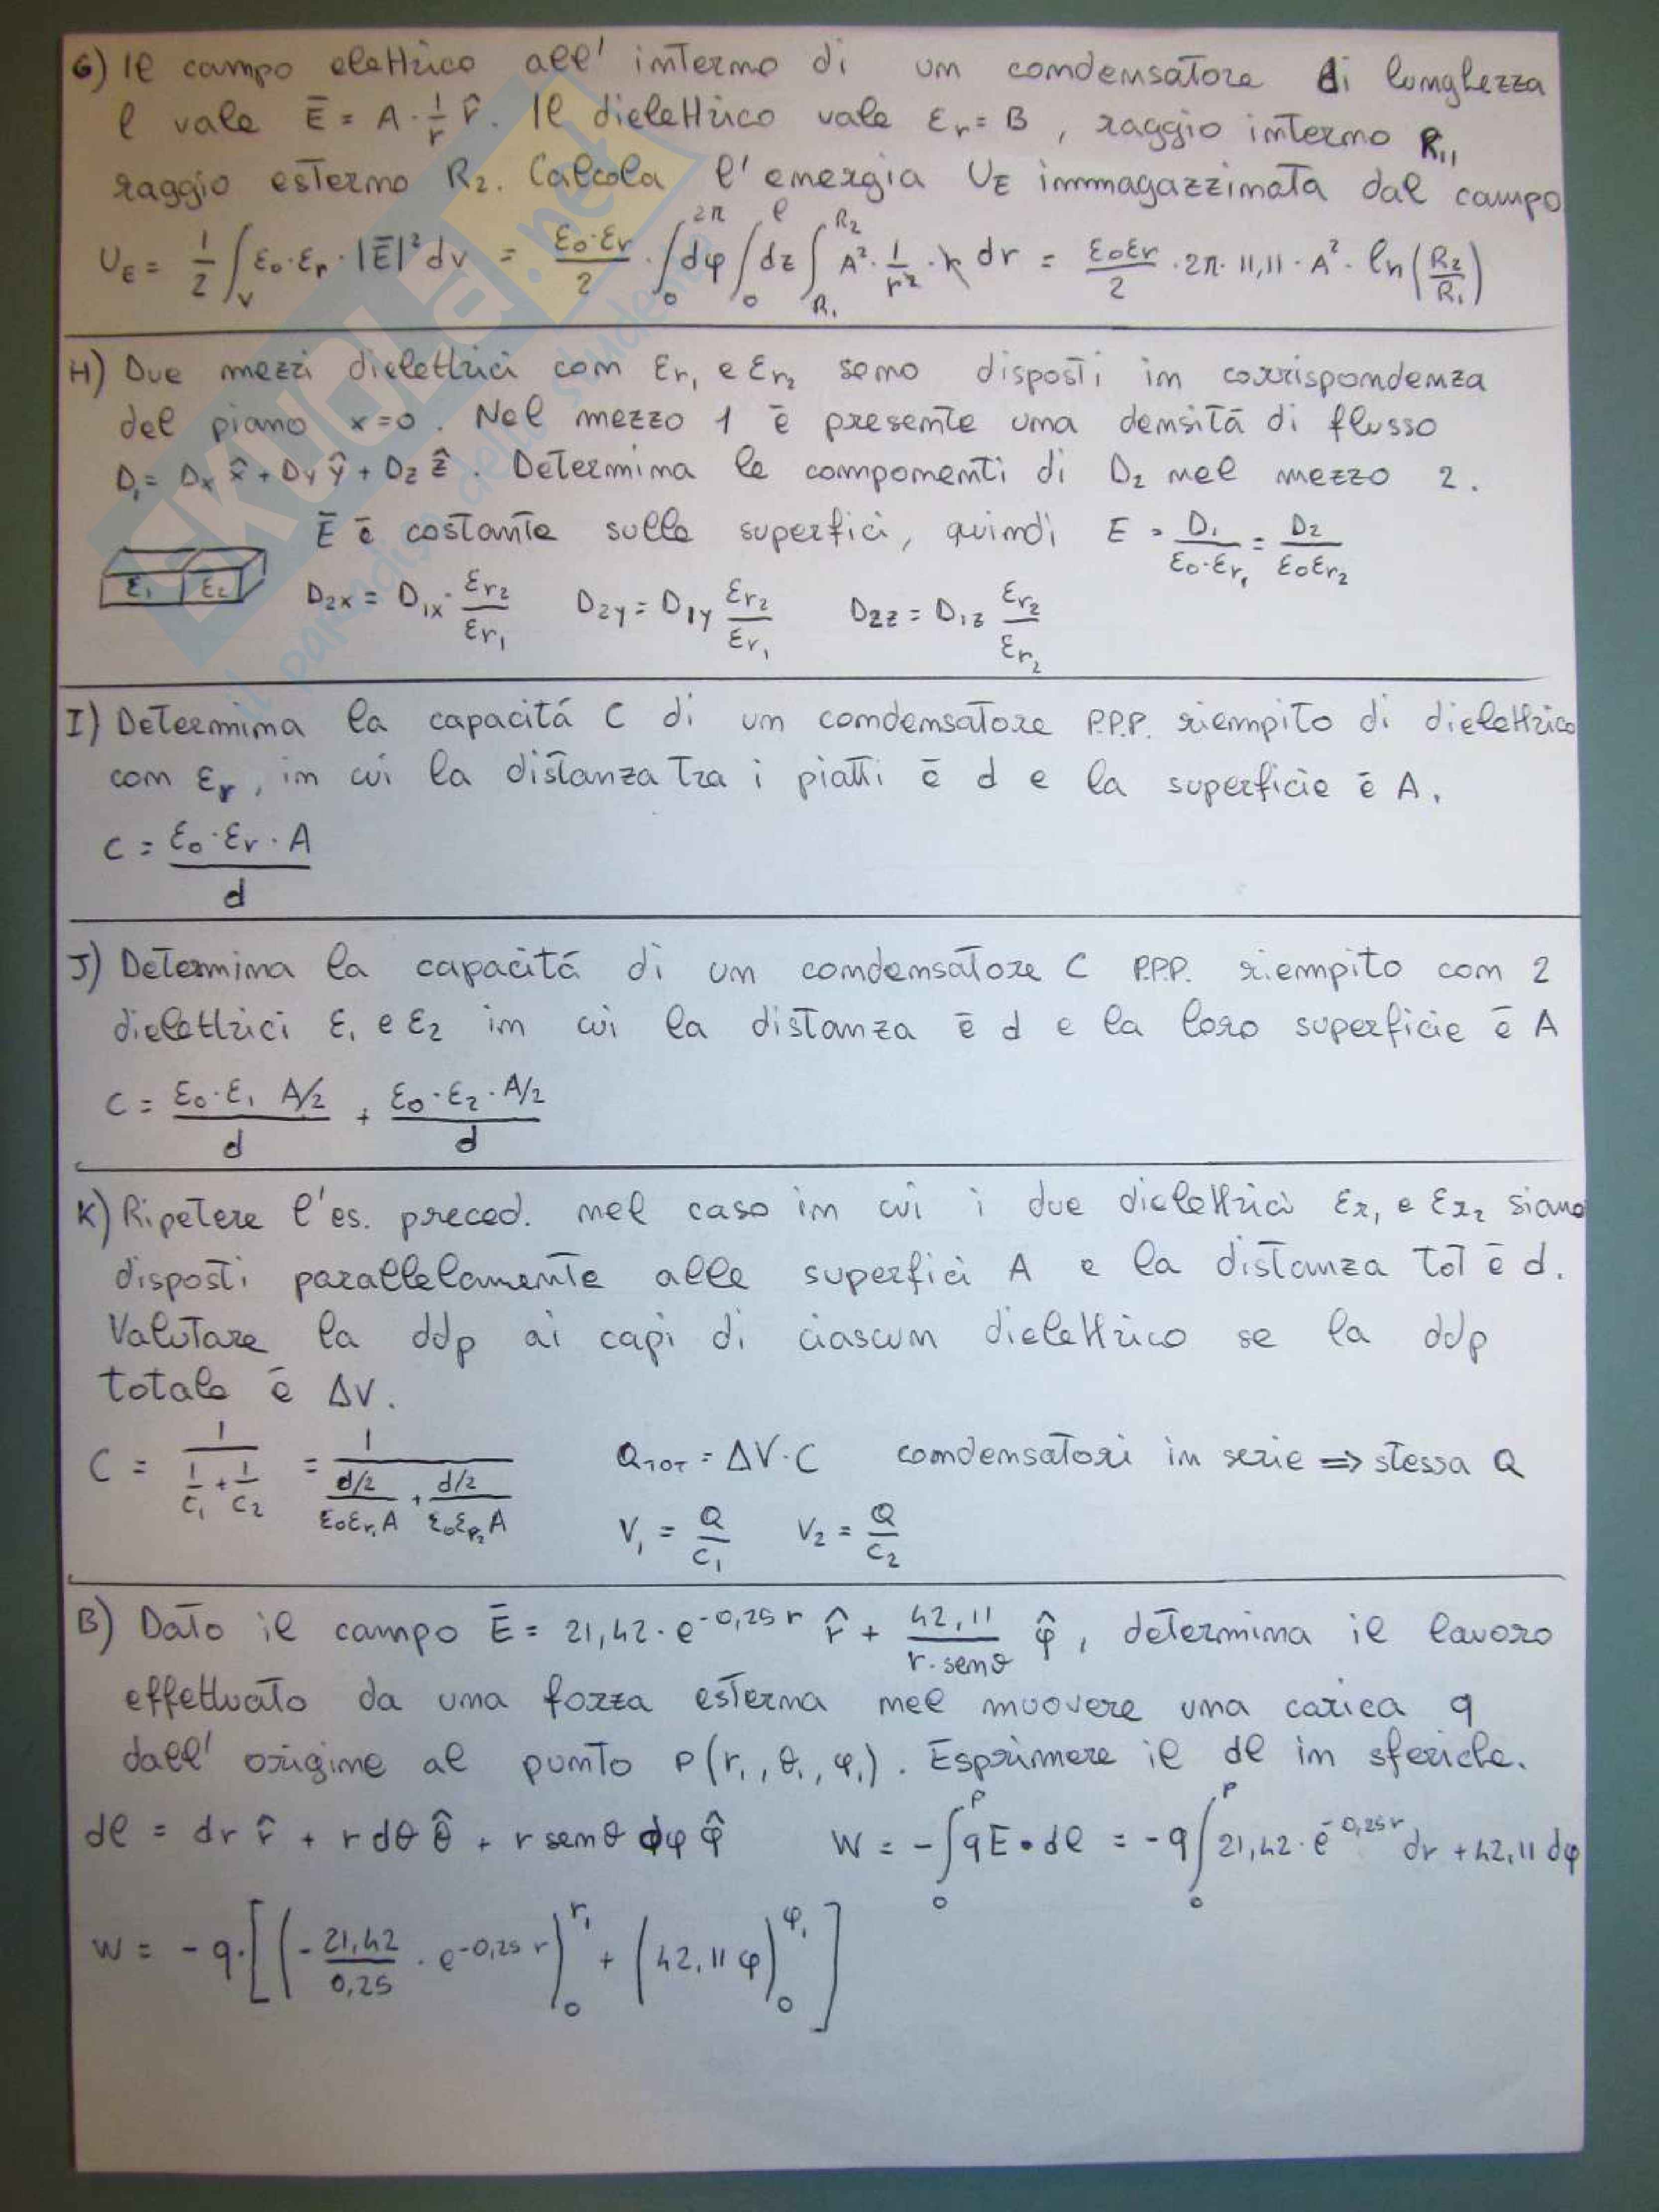 G) Il campo elettrico all'interno di un condensatore di lunghezza
l vale E̅ = A · 1/r r̂. Il dielettrico vale εr = B, raggio interno R1,
raggio esterno R2. Calcola l'energia UE immmagazzinata dal campo
UE = 1/2 ∫V ε0·εr·|E̅|² dv = ε0·εr/2 · ∫0^2π dφ ∫0^l dz ∫R1^R2 A² · 1/r² · r dr = ε0εr/2 · 2π · 11,11 · A² · ln(R2/R1)
H) Due mezzi dielettrici con εr1 e εr2 sono disposti in corrispondenza
del piano x=0. Nel mezzo 1 è presente una densità di flusso
D1 = Dx x̂ + Dy ŷ + Dz ẑ. Determina le componenti di D2 nel mezzo 2.
E̅ è costante sulle superfici, quindi E = D1/(ε0·εr1) = D2/(ε0εr2)
ε1 ε2 D2x = D1x · εr2/εr1 D2y = D1y εr2/εr1 D2z = D1z εr2/εr2
I) Determina la capacità C di un condensatore P.P.P. riempito di dielettrico
con εr, in cui la distanza tra i piatti è d e la superficie è A.
C = ε0·εr·A/d
J) Determina la capacità di un condensatore C P.P.P. riempito con 2
dielettrici ε1 e ε2 in cui la distanza è d e la loro superficie è A
C = ε0·ε1 A/2 / d + ε0·ε2·A/2 / d
K) Ripetere l'es. preced. nel caso in cui i due dielettrici εr1 e εr2 siano
disposti parallelamente alle superfici A e la distanza tot è d.
Valutare la ddp ai capi di ciascun dielettrico se la ddp
totale è ΔV.
C = 1/(1/C1 + 1/C2) = 1/((d/2)/(ε0εr1A) + (d/2)/(ε0εr2A)) QTOT = ΔV·C condensatori in serie => stessa Q
V1 = Q/C1 V2 = Q/C2
B) Dato il campo E̅ = 21,42 · e^-0,25r r̂ + 42,11/(r·senθ) φ̂, determina il lavoro
effettuato da una forza esterna nel muovere una carica q
dall'origine al punto P(r1, θ1, φ1). Esprimere il dl in sferiche.
dl = dr r̂ + r dθ θ̂ + r senθ dφ φ̂ W = -∫0^P qE•dl = -q ∫0^P 21,42 · e^-0,25r dr + 42,11 dφ
W = -q·[(-21,42/0,25 · e^-0,25r)0^r1 + (42,11 φ)0^φ1]
SKUOLA.net
il paradiso dello studente